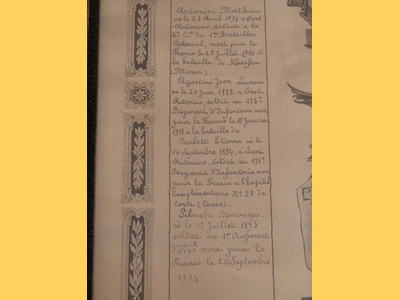 Antonini Mathieu
né le 23 Avril 1894 à Sant'
Antonino soldat à la
Cie du 1er Bataillon
Colonial, mort pour la
France le 27 Juillet 1914 à
la bataille de
(Maroc)
Agostini Jean Laurent
né le 20 Juin 1882 à Sant'
Antonino, soldat au 173e
Régiment d'Infanterie mort
pour la France le 17 Janvier
1915 à la bataille de
Carlotti Etienne né le
16 Septembre 1894, à Sant'
Antonino, Soldat au 173e
Régiment d'Infanterie mort
pour la France à l'Hôpital
Complémentaire No 28 de
Corte (Corse).
Silvestri Dominique,
né le 17 Juillet 1893
soldat au 1er Régiment
mort pour la
France le 20 Septembre
1914